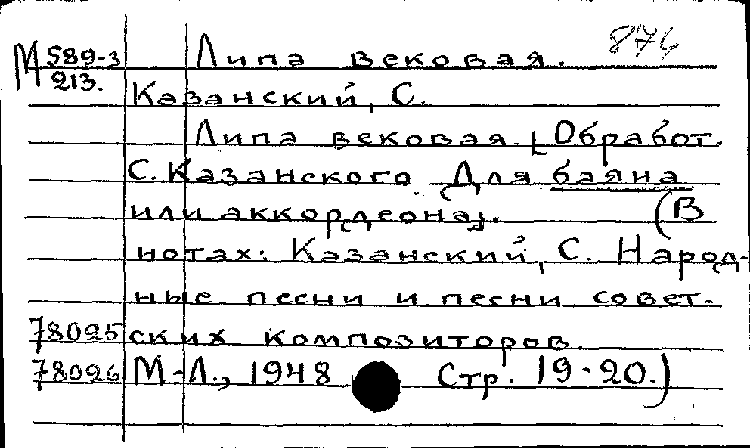 М 589-3 Липа вековая. 874
213.
Казанский, С.
Липа вековая. [Обработ.
С. Казанского. Для баяна
или аккордеона]. (В
нотах: Казанский, С. Народ-
ные песни и песни совет-
78025 ских композиторов.
78026 М-Л., 1948 Стр. 19-20.)